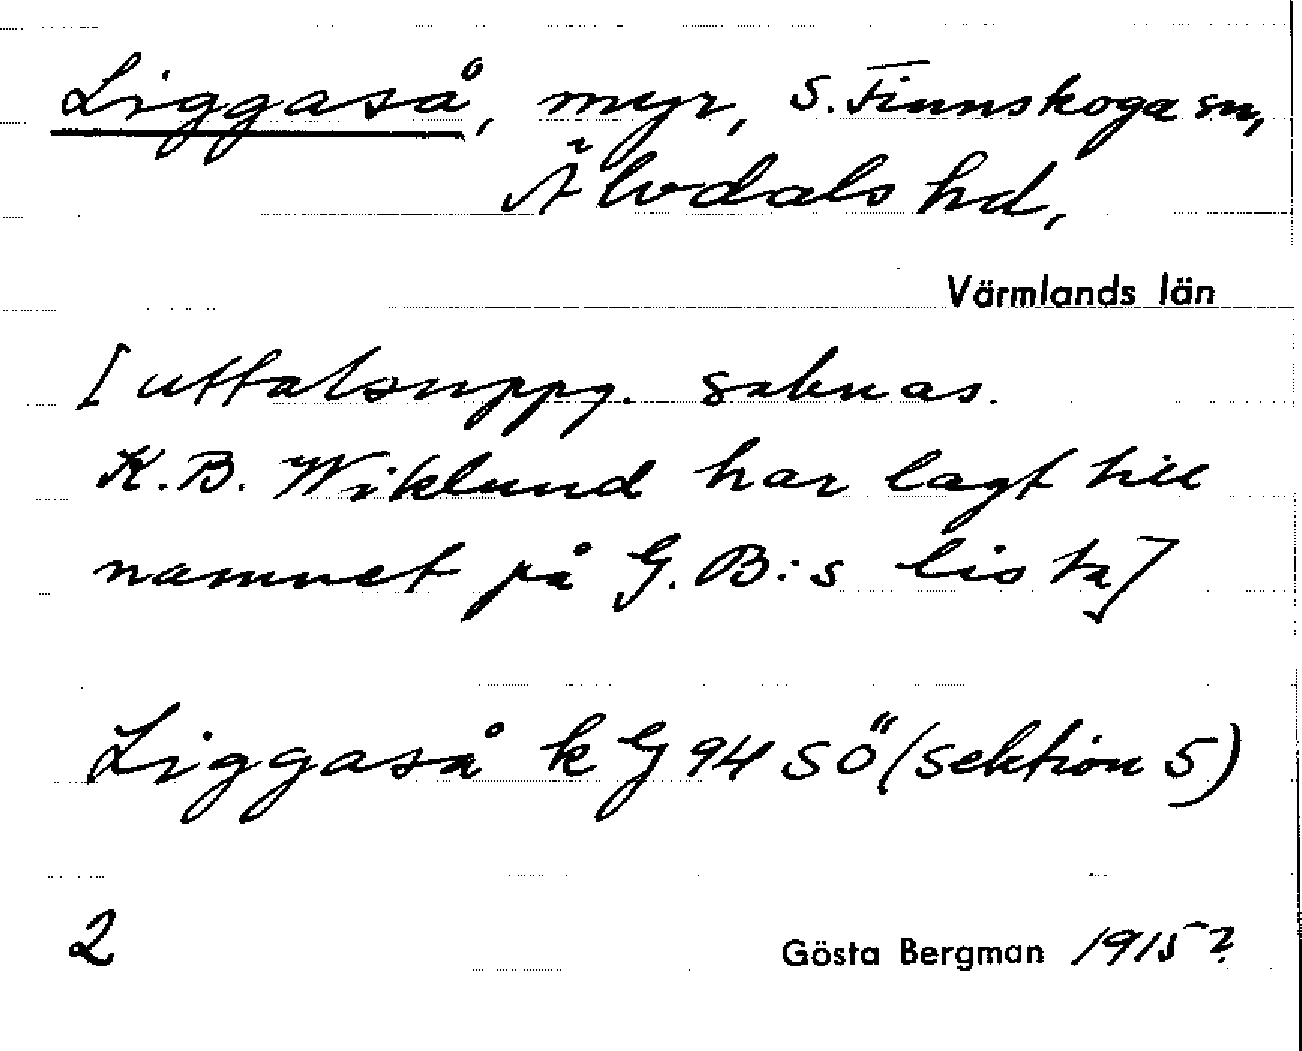 Liggaså, myr, S. Finnskoga sn,
Älvdals hd,
Värmlands län
[uttalsuppg. saknas.
K.B. Wiklund har lagt till
namnet på G.B:s lista]
Liggaså k G 94 SÖ (sektion 5)
2
Gösta Bergman 1915?